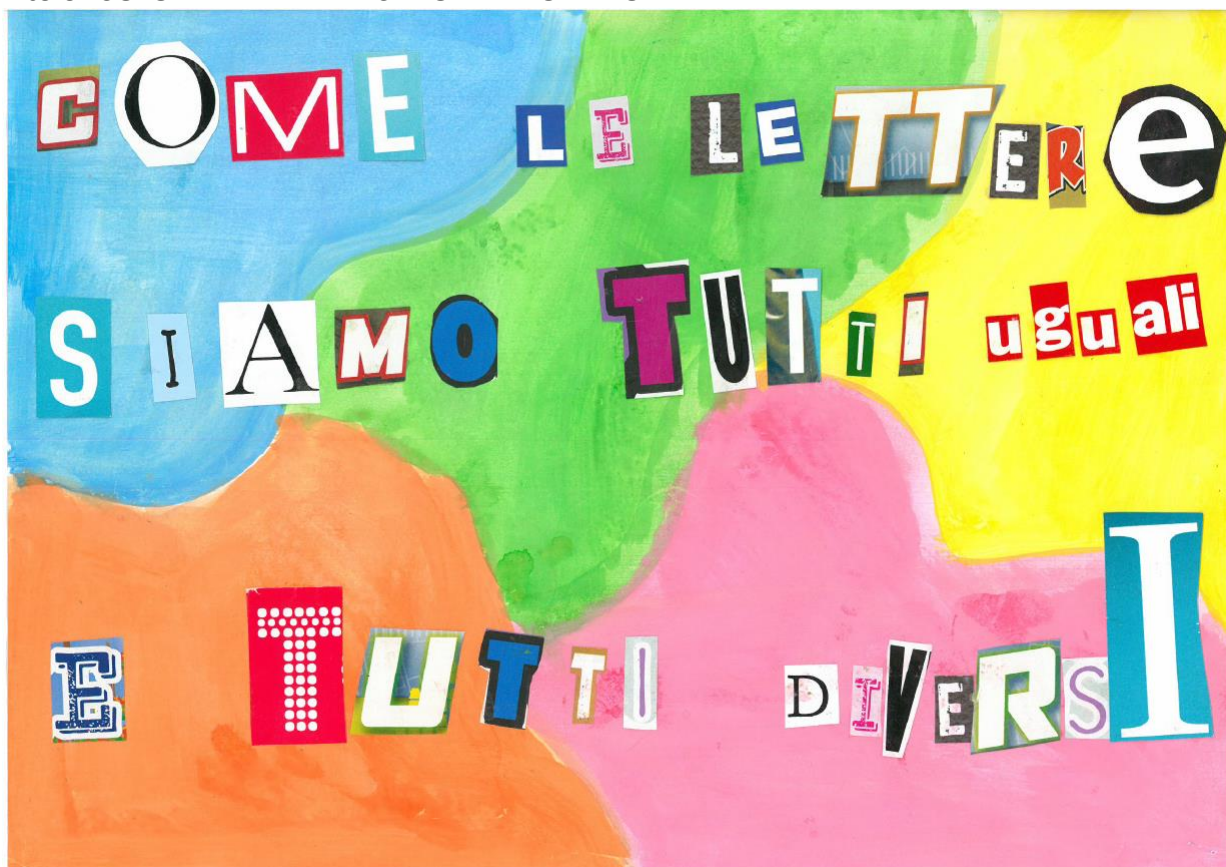 COME LE LETTERe
SIAMO TUTTI uguali
E TUTTI DIVERSI